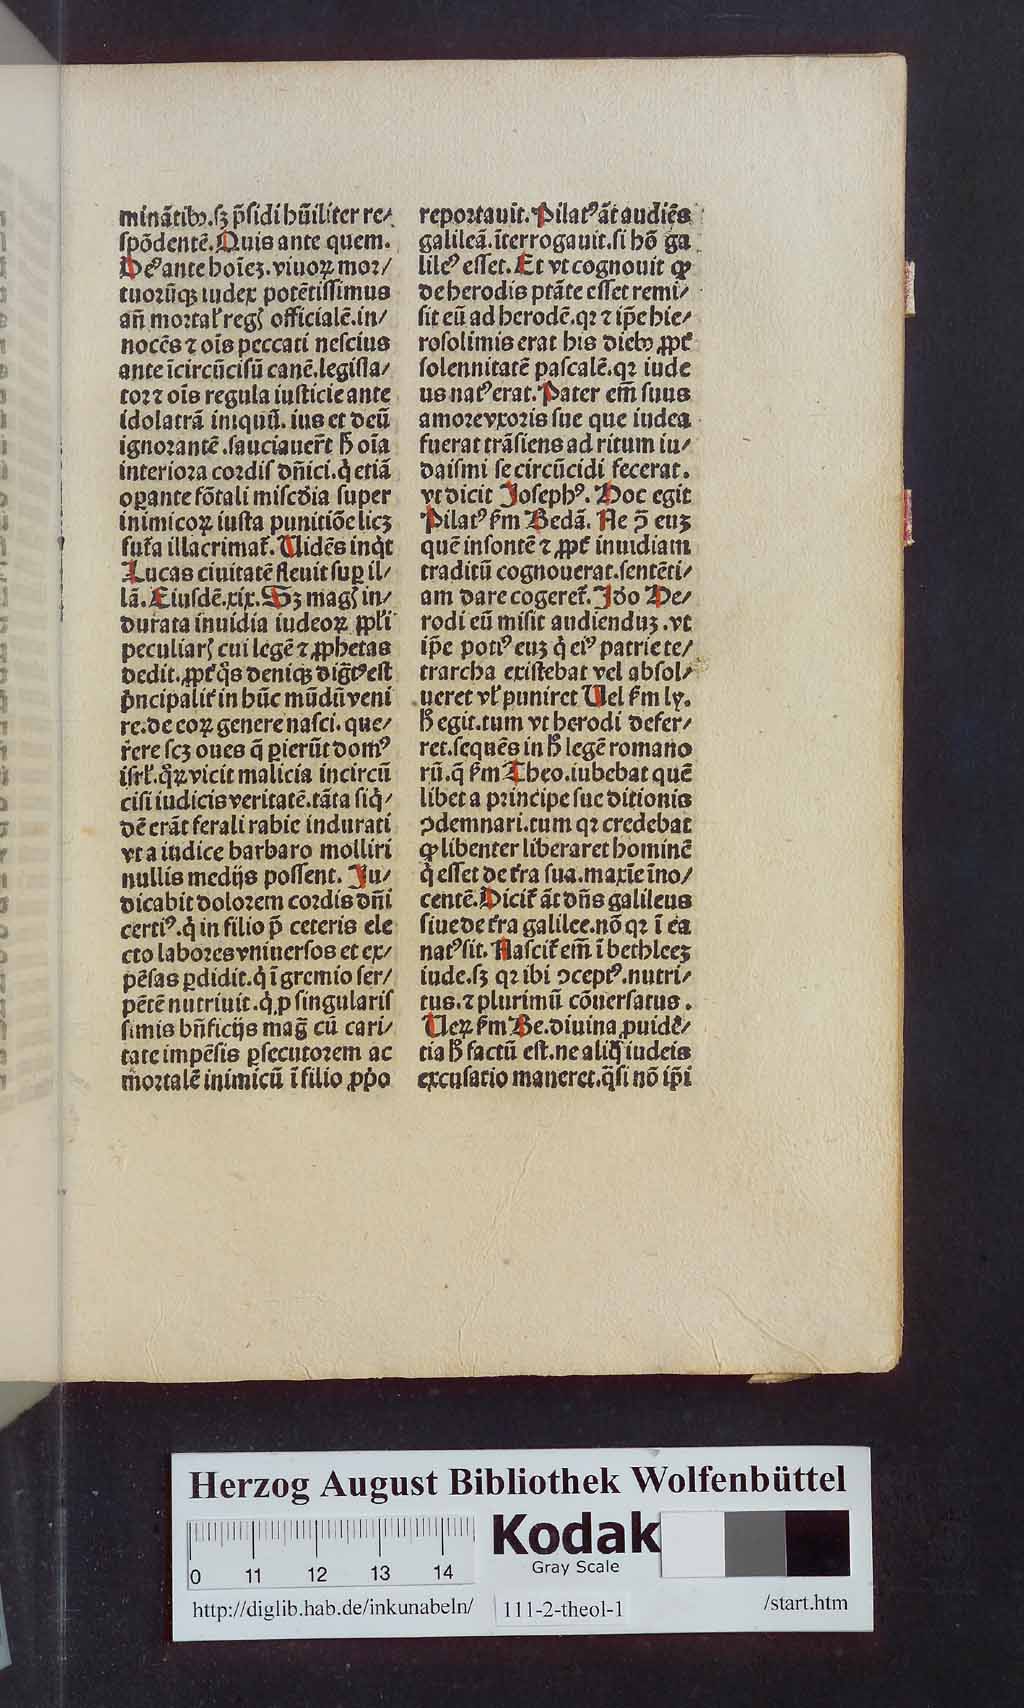 minãtibꝰ.sꝫ p̃sidi hũiliter re⸗
spõdentẽ. Quis ante quem.
Deꝰ ante hoĩeꝫ. viuoꝝ mor⸗
tuorũqꝫ iudex potẽtissimus
añ mortal̕ regꝭ officialẽ. in⸗
nocẽs ⁊ oĩs peccati nescius
ante ĩcircũcisũ canẽ. legisla⸗
tor ⁊ oĩs regula iusticie ante
idolatrã iniquũ. ius et deũ
ignorantẽ. sauciauer̃t ℏ oĩa
interiora cordis dñici. q̇ etiã
oꝑante fõtali misc̃dia super
inimicoꝝ iusta punitiõe licꝫ
fut̃a illacrimat̃. Uidẽs inq̇t
Lucas ciuitatẽ fleuit suꝑ il⸗
lã. Eiusdẽ. xix. Sꝫ magꝭ in⸗
durata inuidia iudeoꝝ ppl̕i
peculiarꝭ cui legẽ ⁊ ꝓphetas
dedit. ꝓpt̃ q̃s deniqꝫ dig̃tꝰ est
ṗncipalit̃ in hũc mũdũ veni
re. de eoꝝ genere nasci. que⸗
r̃ere scꝫ oues q̃ ꝑierũt domꝰ
isrl̕. q̃ꝝ vicit malicia incircũ
cisi iudicis veritatẽ. tãta siq̇⸗
dẽ erãt ferali rabie indurati
vt a iudice barbaro molliri
nullis medijs possent. Iu⸗
dicabit dolorem cordis dñi
certiꝰ. q̇ in filio p̃ ceteris ele
cto labores vniuersos et ex⸗
pẽsas ꝑdidit. q̇ ĩ gremio ser⸗
pẽtẽ nutriuit. q̇ ꝓ singularis
simis bñficijs mag̃ cũ cari⸗
tate impẽsis ꝑsecutorem ac
mortalẽ inimicũ ĩ filio ꝓṗo
reportauit. Pilatꝰ ãt audiẽs
galileã. ĩterrogauit. si hõ ga
lileꝰ esset. Et vt cognouit ꝙ
de herodis ptãte esset remi⸗
sit eũ ad herodẽ. qꝛ ⁊ ip̃e hie⸗
rosolimis erat his diebꝰ ꝓpt̃
solennitatẽ pascalẽ. qꝛ iude
us natꝰ erat. Pater em̃ suus
amore vxoris sue que iudea
fuerat trãsiens ad ritum iu⸗
daismi se circũcidi fecerat.
vt dicit Josephꝰ. Hoc egit
Pilatꝰ fm̃ Bedã. Ne p̃ euꝫ
quẽ insontẽ ⁊ ꝓpt̃ inuidiam
traditũ cognouerat. sentẽti⸗
am dare cogeret̃. Iõo He⸗
rodi eũ misit audienduꝫ. vt
ip̃e potiꝰ euꝫ q̇ eiꝰ patrie te⸗
trarcha existebat vel absol⸗
ueret vl̕ puniret Uel fm̃ ly.
ℏ egit. tum vt herodi defer⸗
ret. sequẽs in ℏ legẽ romano
rũ. q̃ fm̃ Theo. iubebat quẽ
libet a principe sue ditionis
ꝯdemnari. tum qꝛ credebat
ꝙ libenter liberaret hominẽ
q̇ esset de t̃ra sua. maxĩe ĩno⸗
centẽ. Dicit̃ ãt dñs galileus
siue de t̃ra galilee. nõ qꝛ ĩ ea
natꝰ sit. Nascit̃ em̃ ĩ bethleeꝫ
iude. sꝫ qꝛ ibi ꝯceptꝰ. nutri⸗
tus. ⁊ plurimũ cõuersatus.
Ueꝝ fm̃ Be. diuina ꝓuidẽ⸗
tia ℏ factũ est. ne aliq̃ iudeis
excusatio maneret. q̃si nõ ip̃i
Herzog August Bibliothek Wolfenbüttel
0 11 12 13 14
Kodak
Gray Scale
http://diglib.hab.de/inkunabeln/ 111-2-theol-1 /start.htm